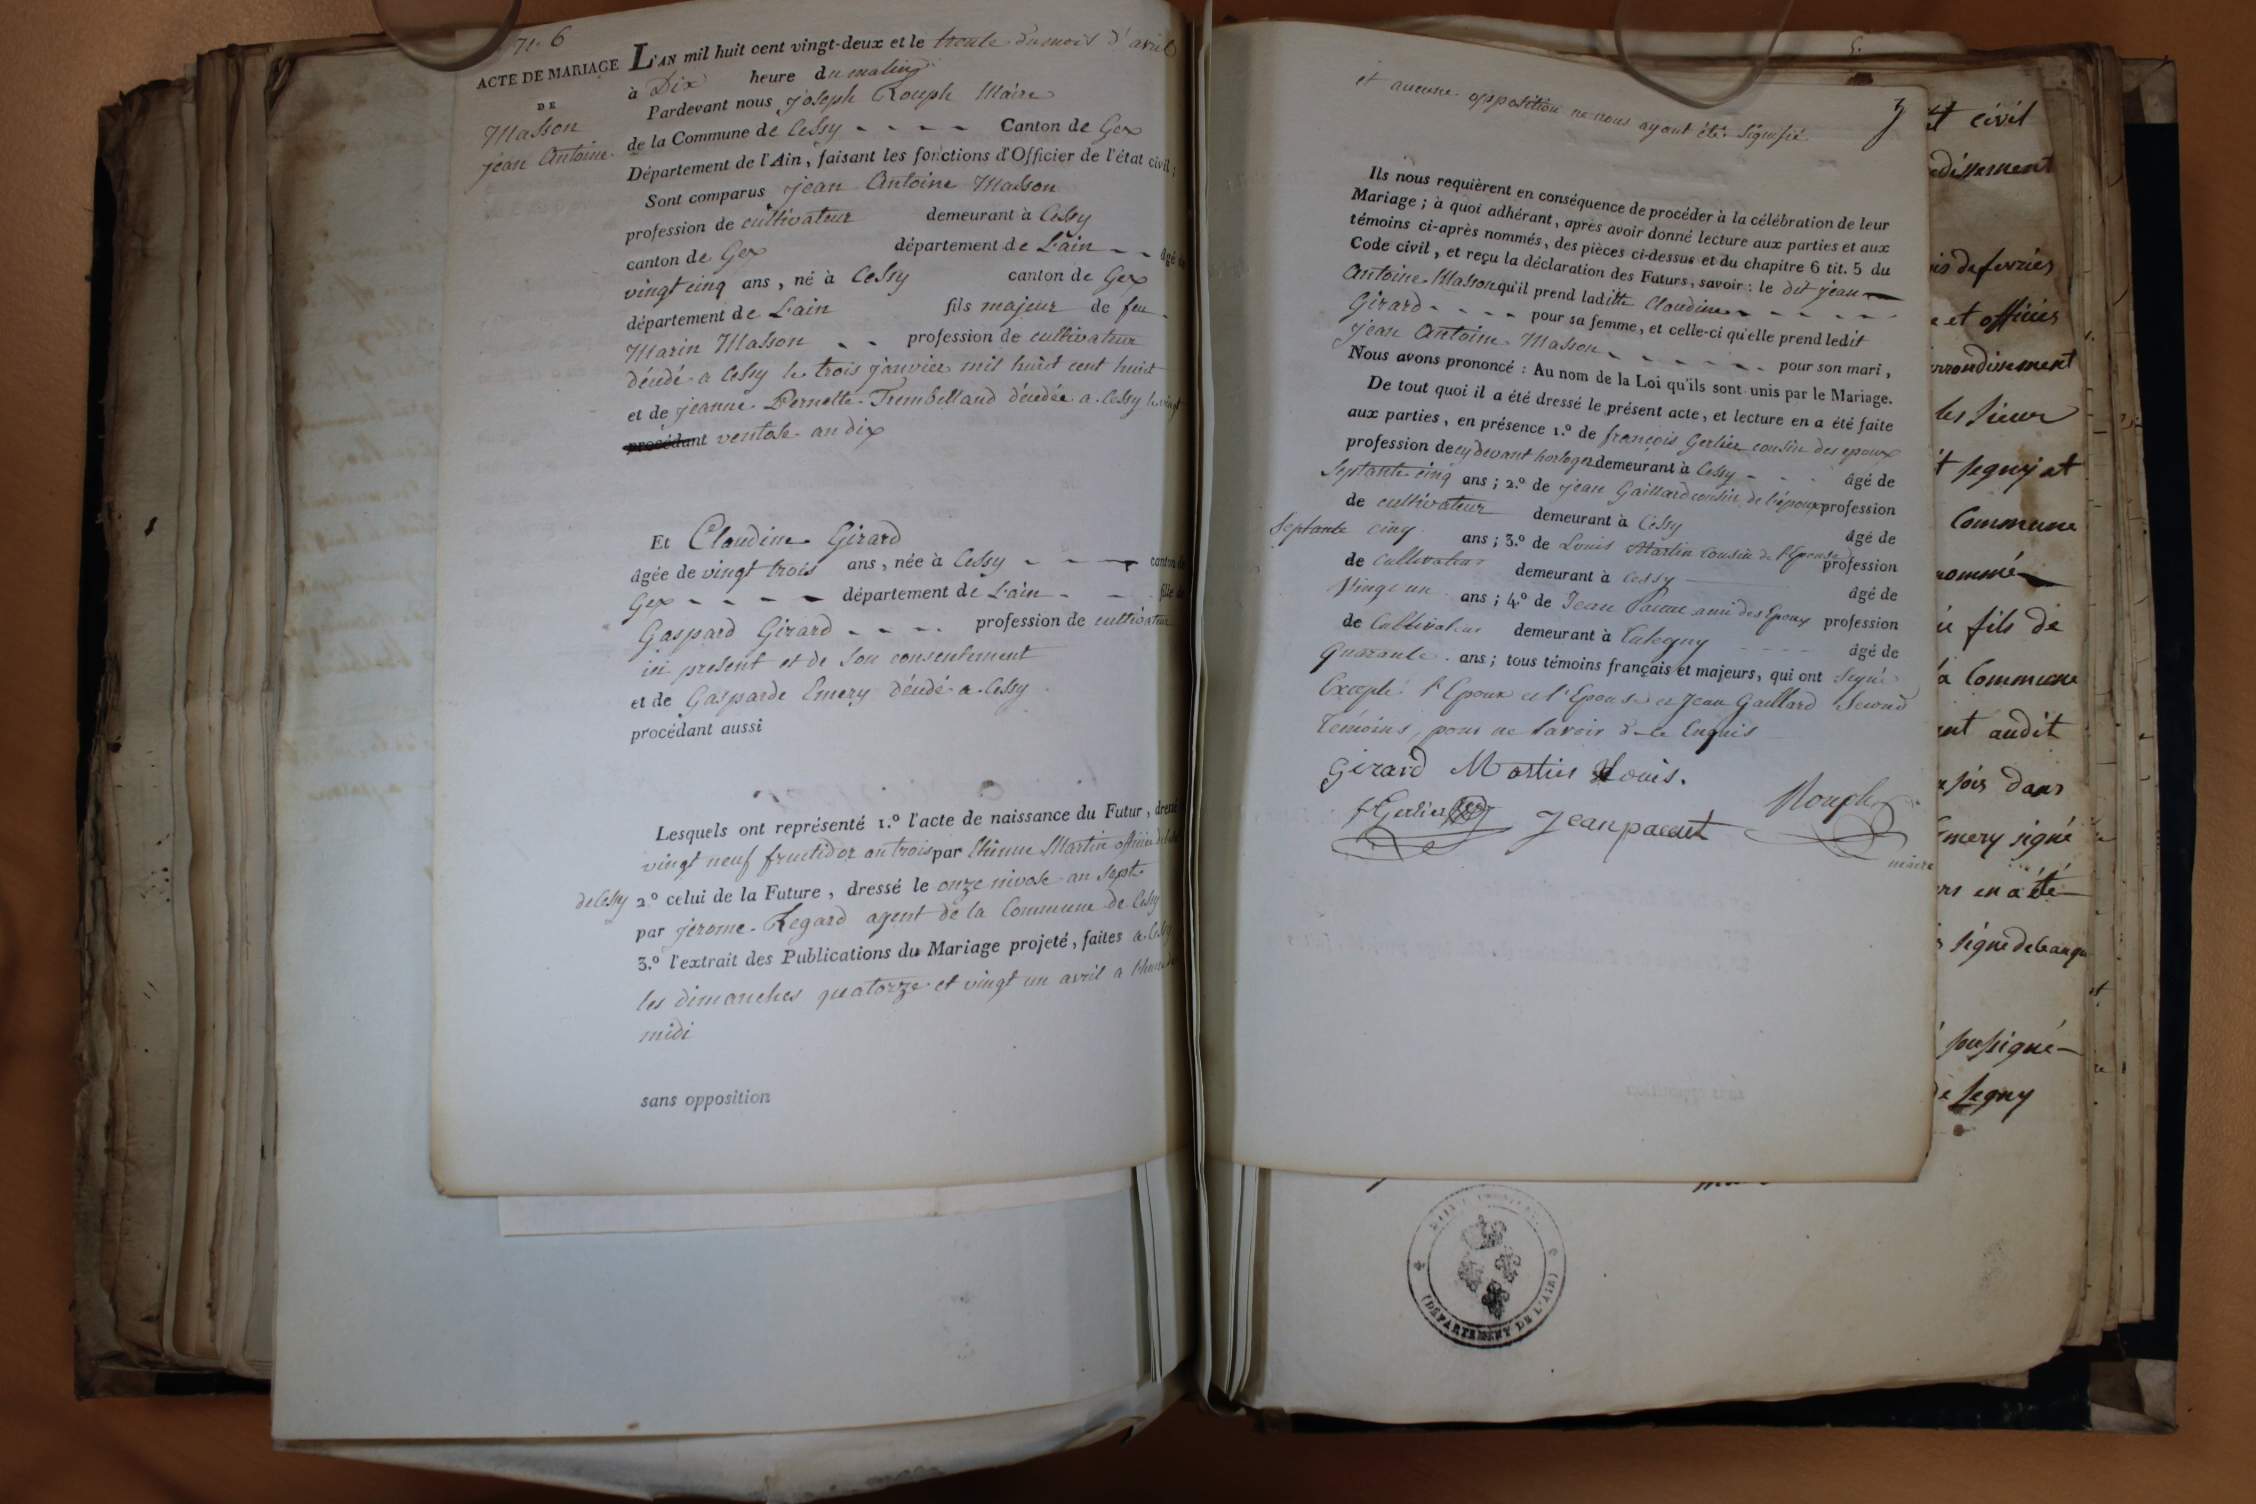 N.º 6
ACTE DE MARIAGE
DE
Masson
jean Antoine
L'AN mil huit cent vingt-deux et le trente du mois d'avril
à Dix heure du matin
Pardevant nous joseph Rouph Maire
de la Commune de Cessy - - - - Canton de Gex
Département de l'Ain, faisant les fonctions d'Officier de l'état civil;
Sont comparus jean Antoine Masson
profession de cultivateur demeurant à Cessy
canton de Gex département de L'ain - - âgé de
vingt cinq ans, né à Cessy canton de Gex
département de L'ain fils majeur de feu
Marin Masson - - profession de cultivateur
décédé a Cessy le trois janvier mil huit cent huit
et de jeanne Pernette Trembelland décédée a Cessy le vingt
procédant ventose an dix
Et Claudine Girard
âgée de vingt trois ans, née à Cessy - - - canton de
Gex - - - - département de L'ain - - fille de
Gaspard Girard - - - - profession de cultivateur
ici present et de son consentement
et de Gasparde Emery décédé a Cessy
procédant aussi
Lesquels ont représenté 1.º l'acte de naissance du Futur, dressé
vingt neuf fructidor an trois par Etienne Martin officier
de Cessy 2.º celui de la Future, dressé le onze nivose an sept
par jérome Regard agent de la Commune de Cessy
3.º l'extrait des Publications du Mariage projeté, faites a Cessy
les dimanches quatorze et vingt un avril a
midi
sans opposition
et aucune opposition ne nous ayant été signifié
Ils nous requièrent en conséquence de procéder à la célébration de leur
Mariage; à quoi adhérant, après avoir donné lecture aux parties et aux
témoins ci-après nommés, des pièces ci-dessus et du chapitre 6 tit. 5 du
Code civil, et reçu la déclaration des Futurs, savoir: le dit jean
Antoine Masson qu'il prend laditte Claudine - - - - - -
Girard - - - - pour sa femme, et celle-ci qu'elle prend ledit
jean Antoine Masson - - - - - - pour son mari,
Nous avons prononcé: Au nom de la Loi qu'ils sont unis par le Mariage.
De tout quoi il a été dressé le présent acte, et lecture en a été faite
aux parties, en présence 1.º de françois Gerlier cousin des epoux
profession de cy devant horloger demeurant à Cessy - - - âgé de
Septante cinq ans; 2.º de jean Gaillard cousin de l'époux profession
de cultivateur demeurant à Cessy âgé de
Septante cinq ans; 3.º de Louis Martin cousin de l'Epouse profession
de Cultivateur demeurant à Cessy âgé de
Vingt un ans; 4.º de Jean Pacaut ami des Epoux profession
de Cultivateur demeurant à - - - - âgé de
quarante ans; tous témoins français et majeurs, qui ont signé
Excepté l'Epoux et l'Epouse et Jean Gaillard Second
Témoins, pour ne savoir de ce Enquis
Girard Martin Louis.
f Gerlier Jean pacaut Rouph
maire
civil
de fevrier
et officier
arrondissement
les sieur
segny et
Commune
nommé
fils de
Commune
audit
fois dans
Emery signé
en a été
signé
soussigné
de Segny
(DÉPARTEMENT DE L'AIN)